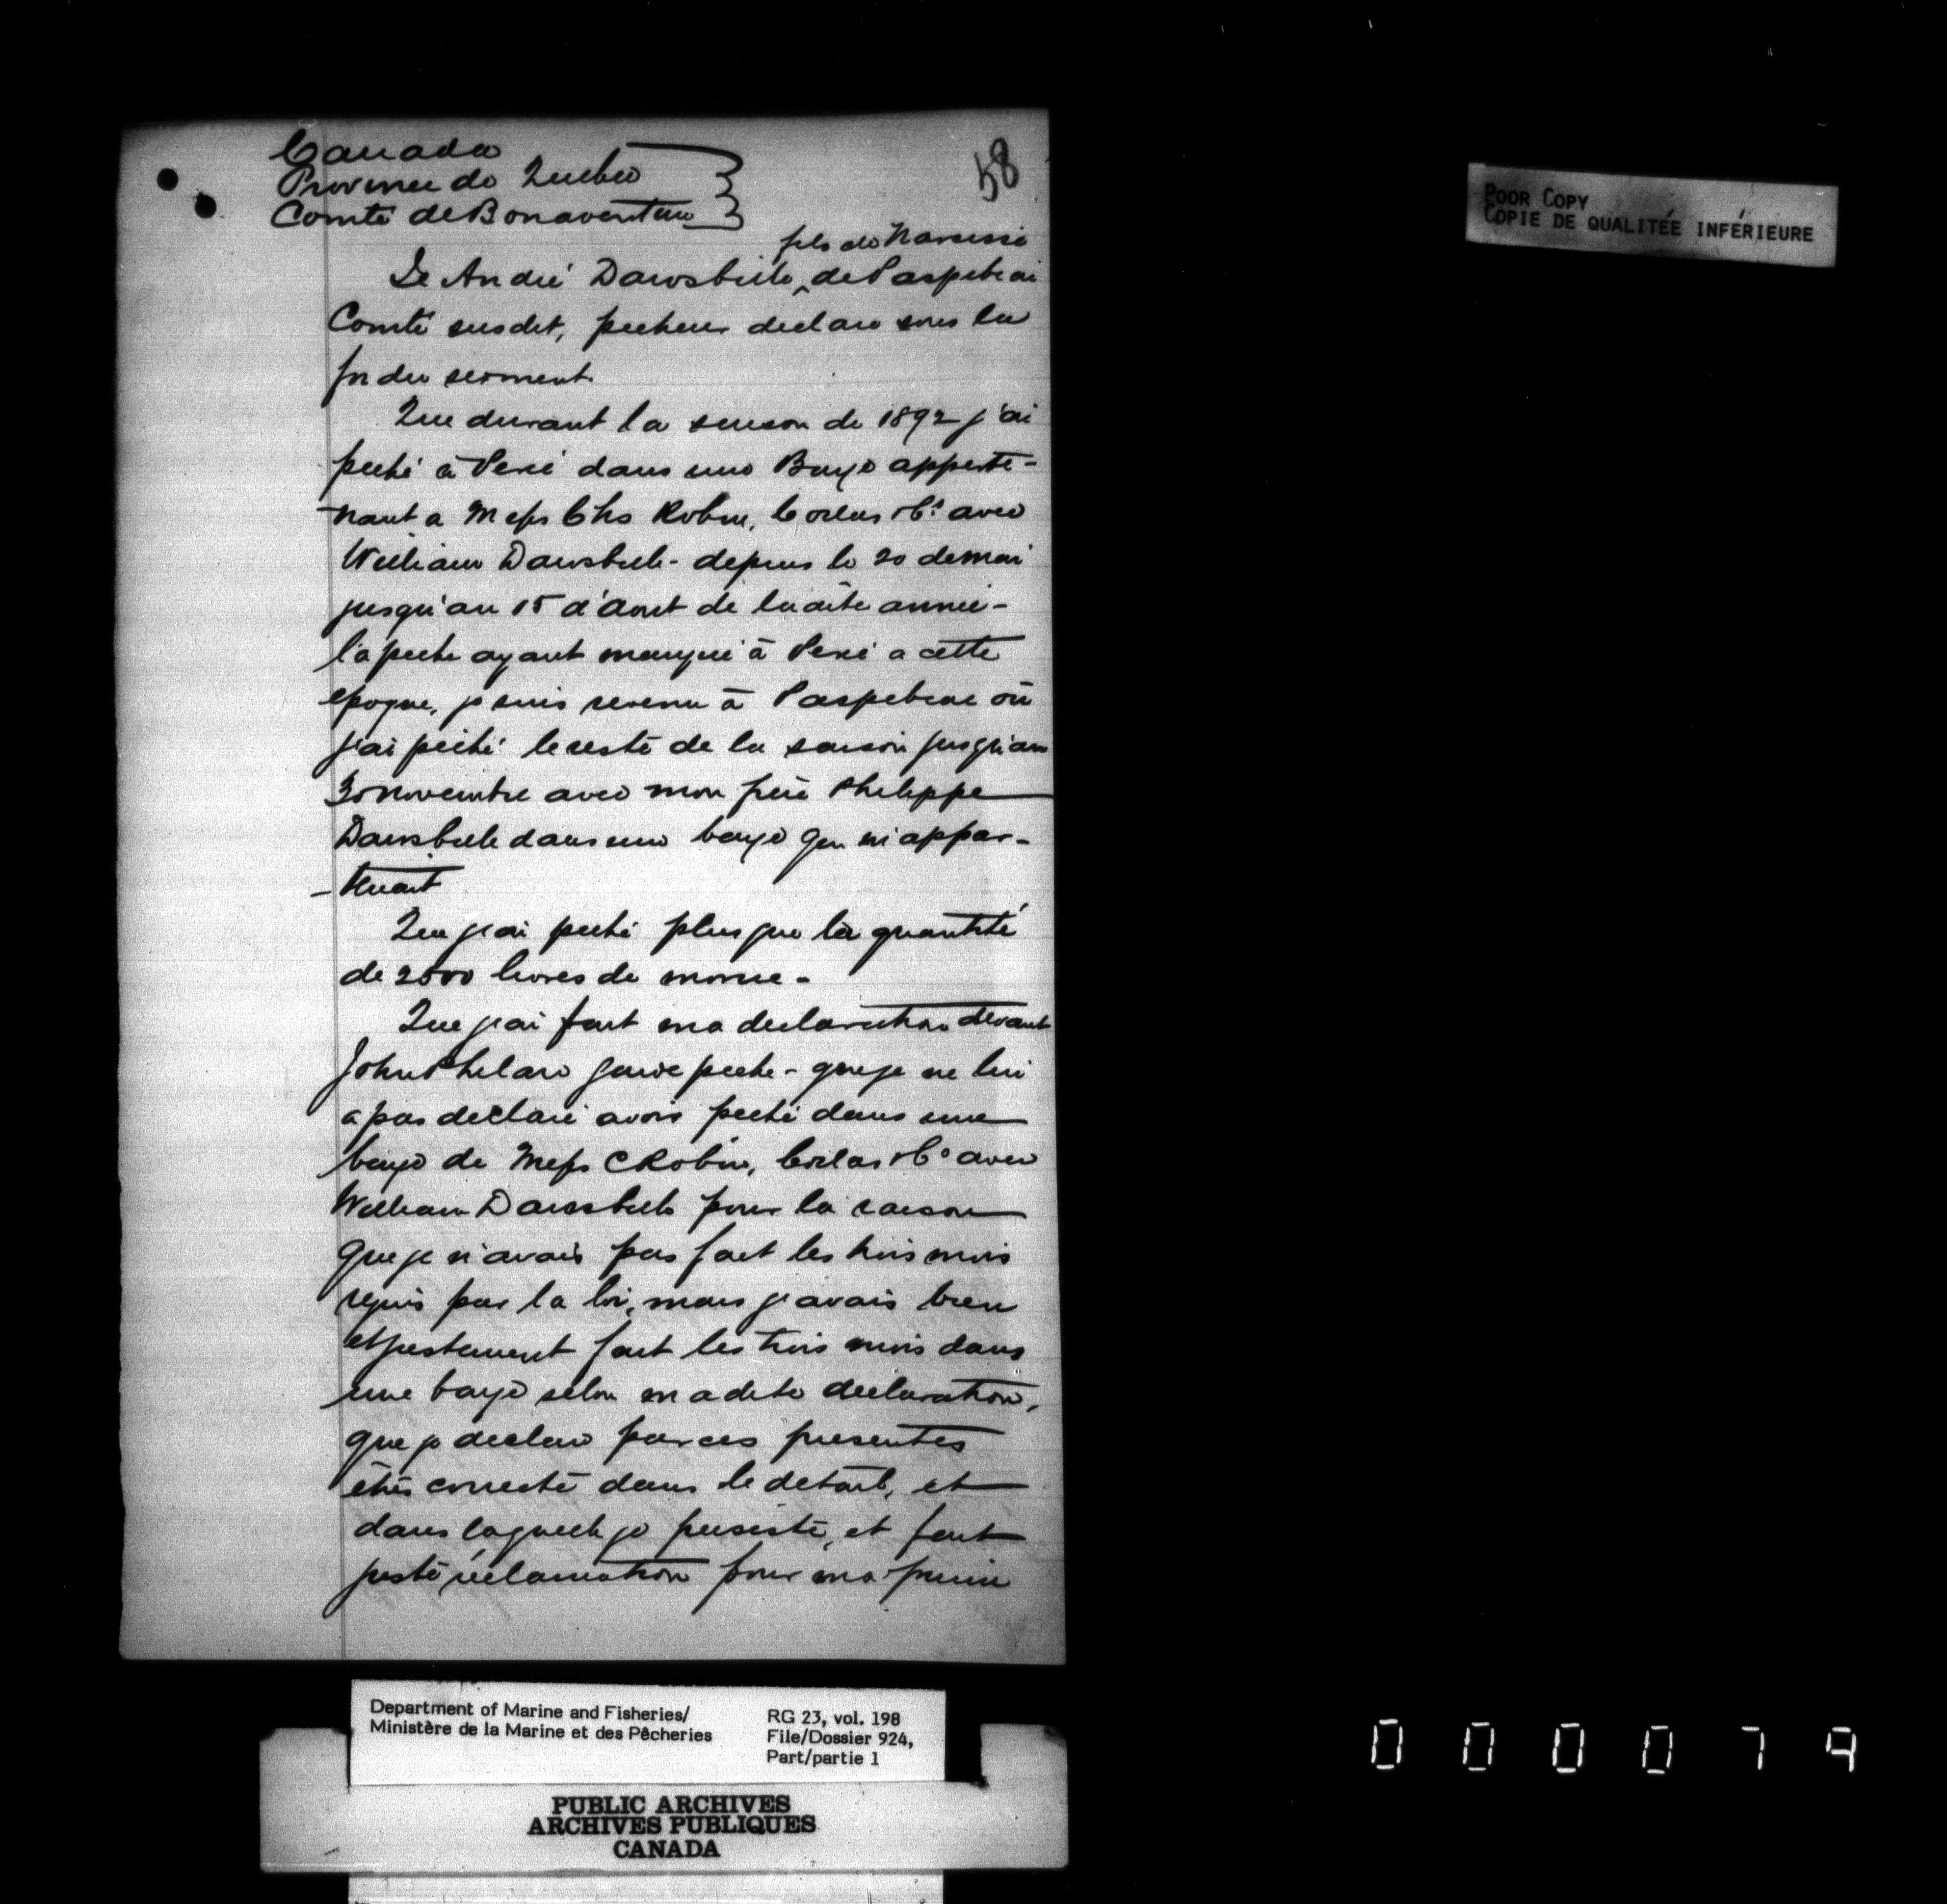 58
Canada
Province de Quebec
Comté de Bonaventure
fils de Narcisse
Je André Dawsbulle, de Paspebiac
Comté susdit, pecheur declare sous la
foi du serment.
Que durant la saison de 1892 j'ai
peché à Percé dans une Barge apparte-
-nant a Mess Chs Robin, Collas & Co avec
William Dawsbulle - depuis le 20 de mai
jusqu'au 15 d'Aout de la dite année -
la peche ayant manqué à Percé a cette
epoque, je suis revenu à Paspebiac où
j'ai peché le reste de la saison jusqu'au
30 novembre avec mon frère Philippe
Dawsbulle dans une barge qui m'appar-
-tenait
Que j'ai peché plus que la quantité
de 2500 livres de morue -
Que j'ai fait ma declaration devant
John Phelan garde peche - que je ne lui
a pas declaré avoir peché dans une
barge de Mess C Robin, Collas & Co avec
William Dawsbulle pour la raison
que je n'avais pas fait les trois mois
requis par la loi, mais j'avais bien
et justement fait les trois mois dans
une barge selon ma dite declaration,
que je declare par ces presentes
être correcte dans le detail, et
dans laquelle je persiste, et fait
juste réclamation pour ma prime
POOR COPY
COPIE DE QUALITÉE INFÉRIEURE
Department of Marine and Fisheries/
Ministère de la Marine et des Pêcheries
RG 23, vol. 198
File/Dossier 924,
Part/partie 1
PUBLIC ARCHIVES
ARCHIVES PUBLIQUES
CANADA
000079